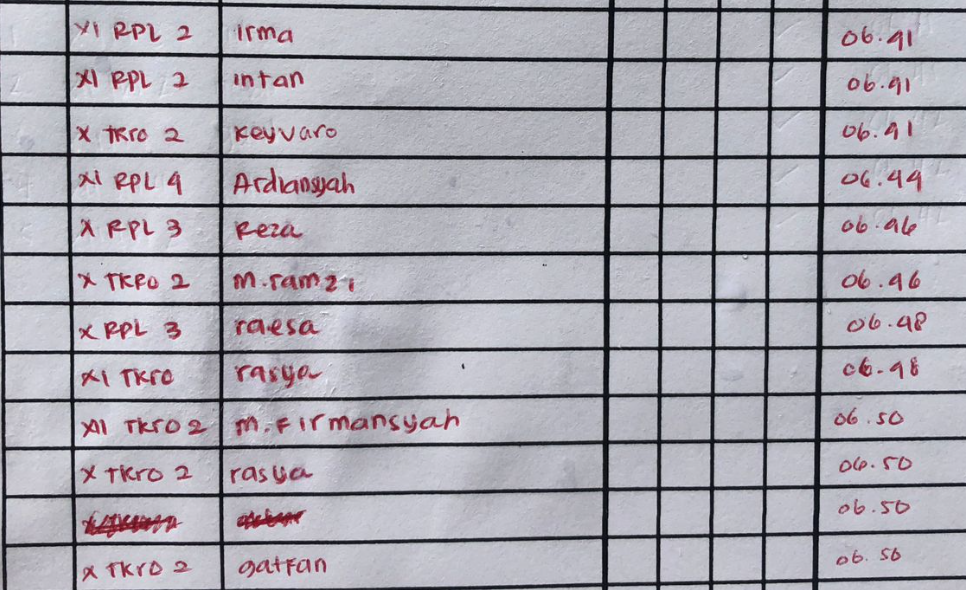 XI RPL 2 irma 06.41
XI RPL 2 intan 06.41
X TKRO 2 Keyvaro 06.41
XI RPL 4 Ardiansyah 06.44
X RPL 3 Reza 06.46
X TKRO 2 M.ramzi 06.46
X RPL 3 raesa 06.48
XI TKRO rasya 06.48
XII TKRO 2 M.Firmansyah 06.50
X TKRO 2 rasya 06.50
06.50
X TKRO 2 gatfan 06.50